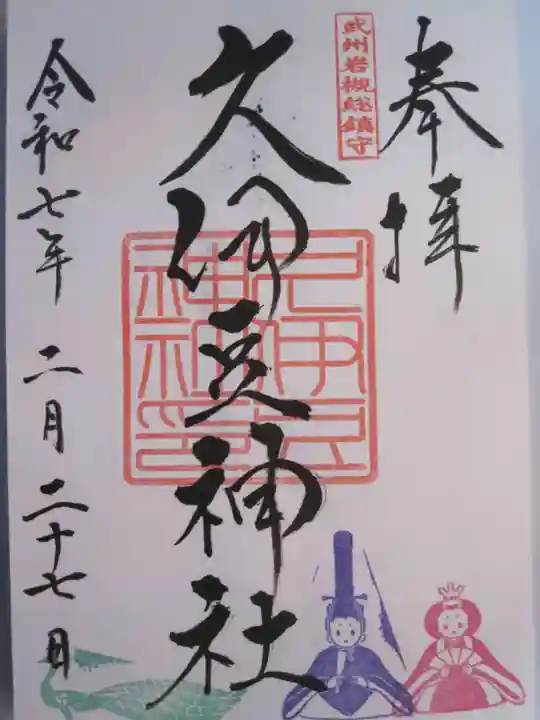 奉拝
武州岩槻総鎮守
久伊豆神社
久伊豆神社印
令和七年 二月二十七日